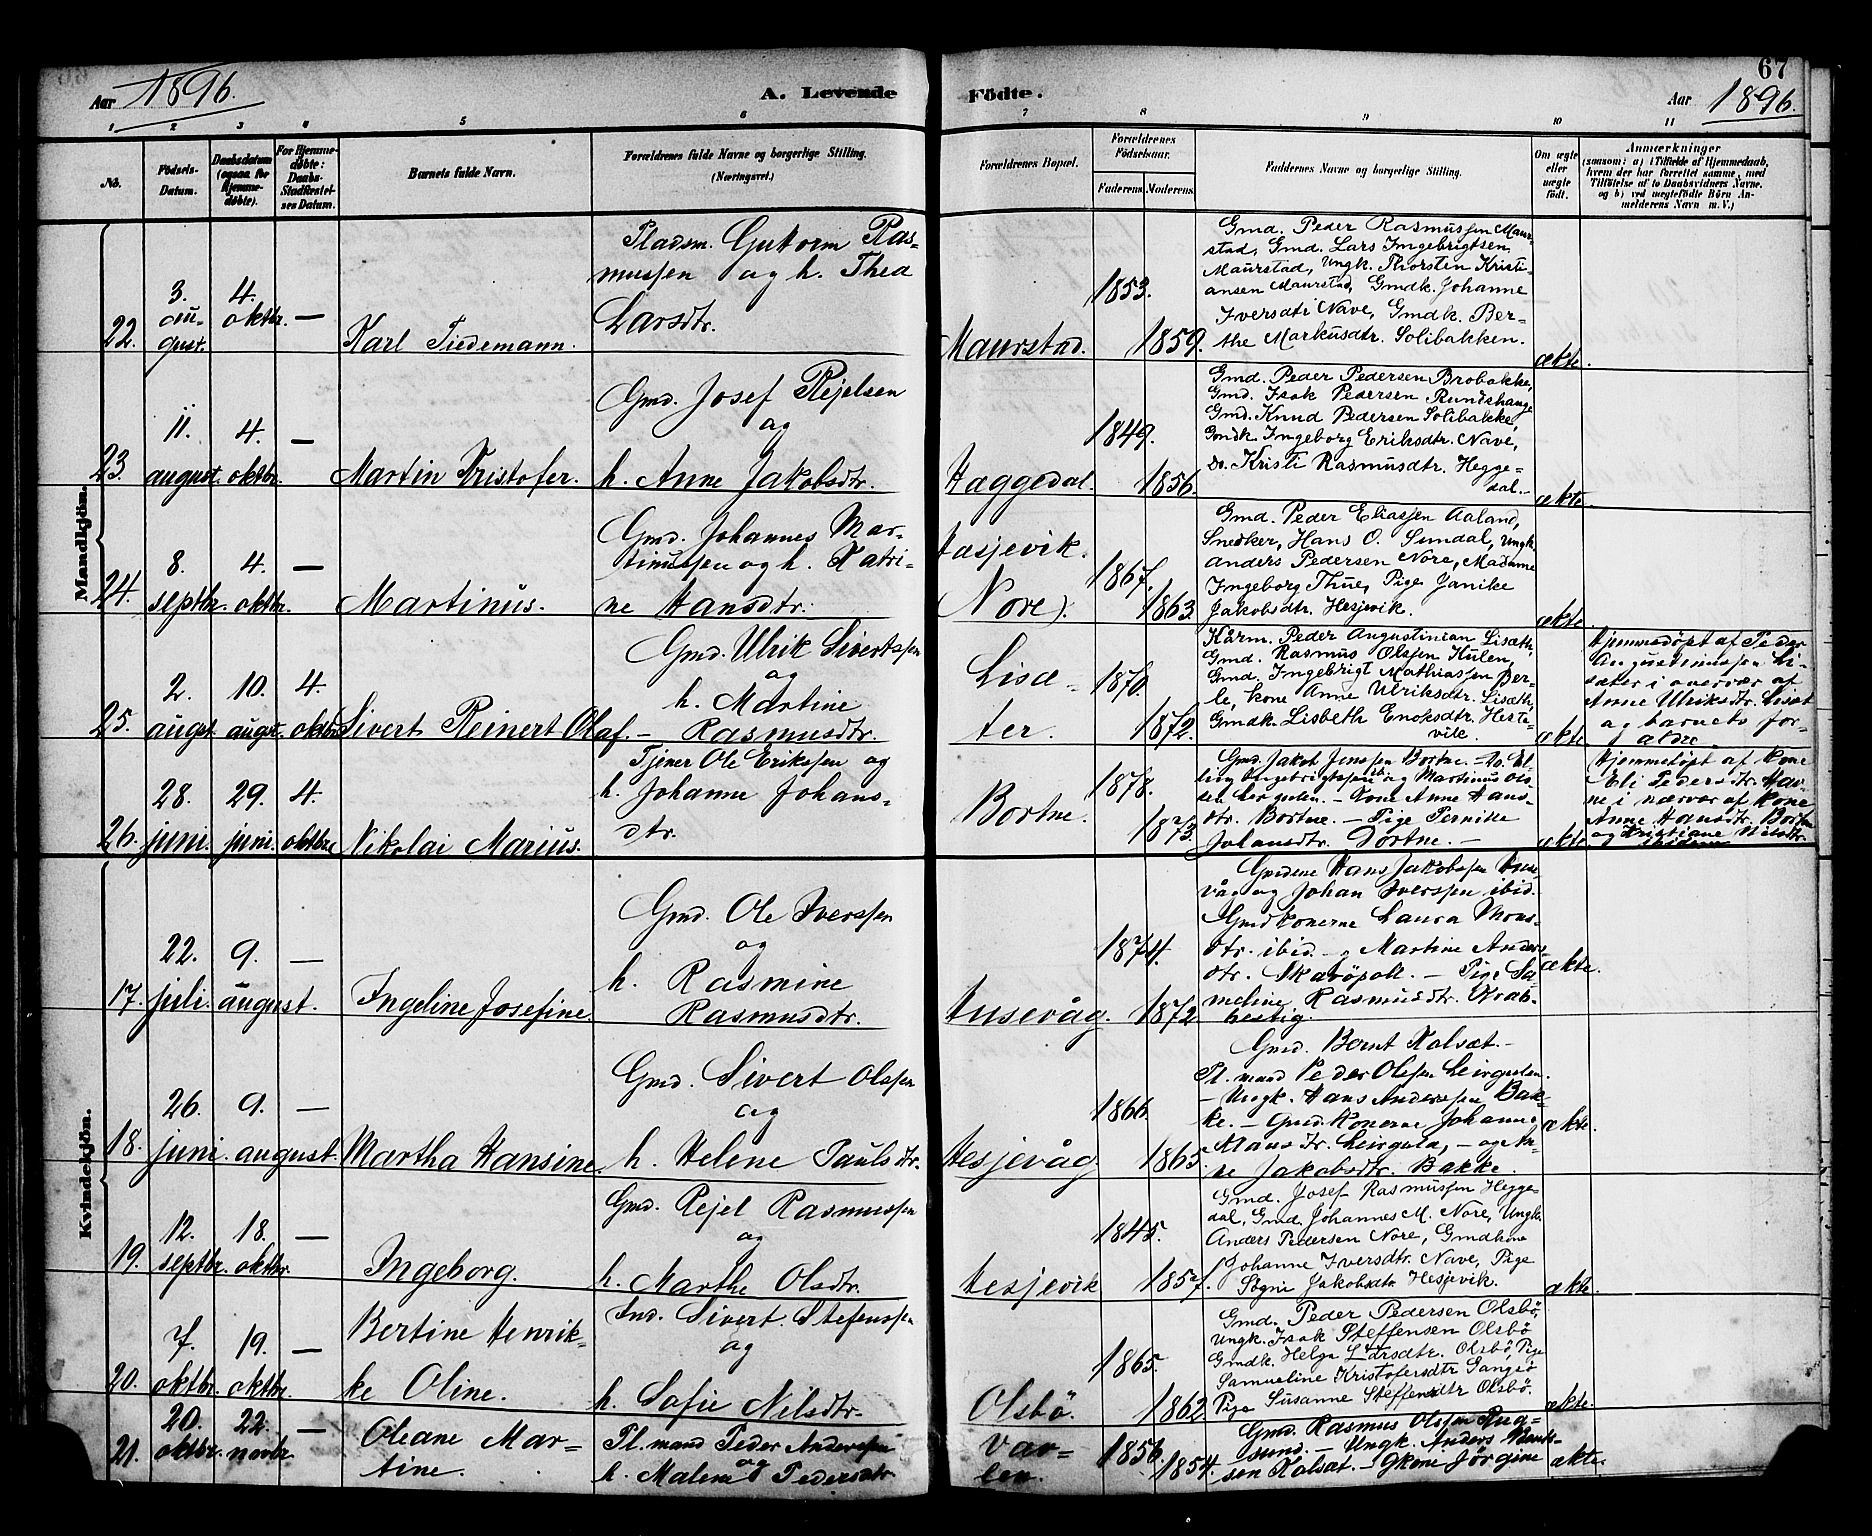 67
Aar 1896.
A. Levende Födte.
Aar 1896.
1 2 3 4 5 6 7 8 9 10 11
No.
Födsels-Datum.
Daabsdatum (ogsaa for Hjemmedöbte).
For Hjemmedöbte: Daabs-Stadfestelses Datum.
Barnets fulde Navn.
Forældrenes fulde Navne og borgerlige Stilling.
(Næringsvei.)
Forældrenes Bopæl.
Forældrenes Födselsaar.
Faderens. Moderens.
Faddernes Navne og borgerlige Stilling.
Om ægte eller uægte födt.
Anmærkninger
(saasom: a) i Tilfælde af Hjemmedaab,
hvem der har forrettet samme, med
Tilföielse af to Daabsvidners Navne.
og b) ved uægtefödte Börn An-
melderens Navn m. V.)
Mandkjön.
22. 3. august. 4. oktbr. —
Karl Tiedemann.
Pladsm. Guttorm Ras-
mussen og h. Thea
Larsdtr.
Maurstad.
1853. 1859.
Gmd. Peder Rasmussen Maur-
stad, Gmd. Lars Ingebrigtsen
Maurstad, Ungk. Thorsten Kristi-
ansen Maurstad, Gmdk. Johanne
Iversdtr Nave, Gmdk. Ber-
the Markusdtr. Solibakken.
ækte.
23. 11. august. 4. oktbr. —
Martin Kristofer.
Gmd. Josef Rejelsen
og
h. Anne Jakobsdtr.
Haggedal.
1849. 1856.
Gmd. Peder Pedersen Brobakke,
Gmd. Isak Pedersen Rundehauge
Gmd. Knud Pedersen Solibakke,
Gmdk. Ingeborg Eriksdtr. Nave,
Do. Kristi Rasmusdtr. Hegge-
dal.
ækte.
24. 8. septbr. 4. oktbr. —
Martinus.
Gmd. Johannes Mar-
tinussen og h. Katri-
ne Hansdtr.
Hasjevik.
(Nore).
1867. 1863.
Gmd. Peder Eliassen Aaland,
Snedker, Hans O. Sundal, Ungk.
Anders Pedersen Nore, Madame
Ingeborg Thue, Pige Janike
Jakobsdtr. Hesjevik.
ækte.
25. 2. augst. 10. augst. 4. oktbr.
Sivert Reinert Olaf.
Gmd. Ulrik Sivertssen
og
h. Martine
— Rasmusdtr.
Lisæ-
ter.
1870. 1872.
Kårm. Peder Augustinian Lisæth,
Gmd. Rasmus Olssen Hulen,
Gmd. Ingebrigt Mathiassen Ber-
le, kone Anne Ulriksdtr. Lisæth,
Gmdk. Lisbeth Enoksdtr. Heste-
vik.
ækte.
Hjemmedöpt af Peder
Augustinussen Li-
sæter i overvær af
Anne Ulriksdtr. Lisæt
og barnets for-
ældre.
26. 28. juni. 29. juni. 4. oktbr
Nikolai Marius.
Tjener Ole Erikssen og
h. Johanne Johans-
dtr.
Bortne.
1878. 1873.
Gmd. Jakob Jenssen Bortne. — Do. El-
ling Ingebrigtssen og Martinus Ols-
sen Leirgulen. — Kone Anne Hans-
dtr. Bortne. — Pige Pernille
Johansdtr. Bortne. —
ækte.
Hjemmedöpt af kone
Eli Pedersdtr. Hav-
ne i nærvær af kone
Anne Hansdtr. Bortne
og Kristiane Nilsdtr.
ibidem
Kvindekjön.
17. 22. juli. 9. august. —
Ingeline Josefine.
Gmd. Ole Iverssen
og
h. Rasmine
Rasmusdtr.
Husevåg.
1874. 1872.
Gmdene Hans Jakobssen Huse-
våg og Johan Iverssen ibid.
Gmdkonerne Laura Mons-
dtr. ibid. og Martine Anders-
dtr. Skavöpoll. — Pige Sa-
meline Rasmusdtr. Krab-
bestig.
ækte.
18. 26. juni. 9. august. —
Martha Hansine.
Gmd. Sivert Olssen
og
h. Helene Paulsdtr.
Hesjevåg.
1866. 1865.
Gmd. Bernt Kalsæt. —
Pl. mand Peder Olssen Leirgulen.
— Ungk. Hans Anderssen Bak-
ke. — Gmd. Konerne Johanne
Klausdtr. Leirgula, — og An-
ne Jakobsdtr. Bakke.
ækte.
19. 12. septbr. 18. oktbr. —
Ingeborg.
Gmd. Rejel Rasmussen
og
h. Marthe Olsdtr.
Hesjevik
1845. 1857.
Gmd. Josef Rasmussen Hegge-
dal, Gmd. Johannes M. Nore, Ungk.
Anders Pedersen Nore, Gmdkone
Johanne Iversdtr. Nave, Pige
Sogni Jakobsdtr. Hesjevik.
ækte.
20. 7. oktbr. 19. oktbr. —
Bertine Henrik-
ke Oline.
Ind. Sivert Stefenssen
og
h. Sofie Nilsdtr.
Olsbö.
1865. 1862.
Gmd. Peder Pedersen Olsbö,
Ungk. Isak Steffensen Olsbö
Gmdk. Helga Larsdtr. Olsbö, Pige
Samueline Kristofersdtr Gangsö
Pige Susanne Steffensdtr Olsbö.
ækte.
21. 20. oktbr. 22. novbr. —
Oleane Mar-
tine.
Pl. mand Peder Anderssen
og
h. Malene Pedersdtr.
Var-
len.
1856. 1854.
Gmd. Rasmus Olssen Rug-
sund. — Ungk. Anders Hans-
sen Kalsæt. — Gkone Jörgine
ækte.